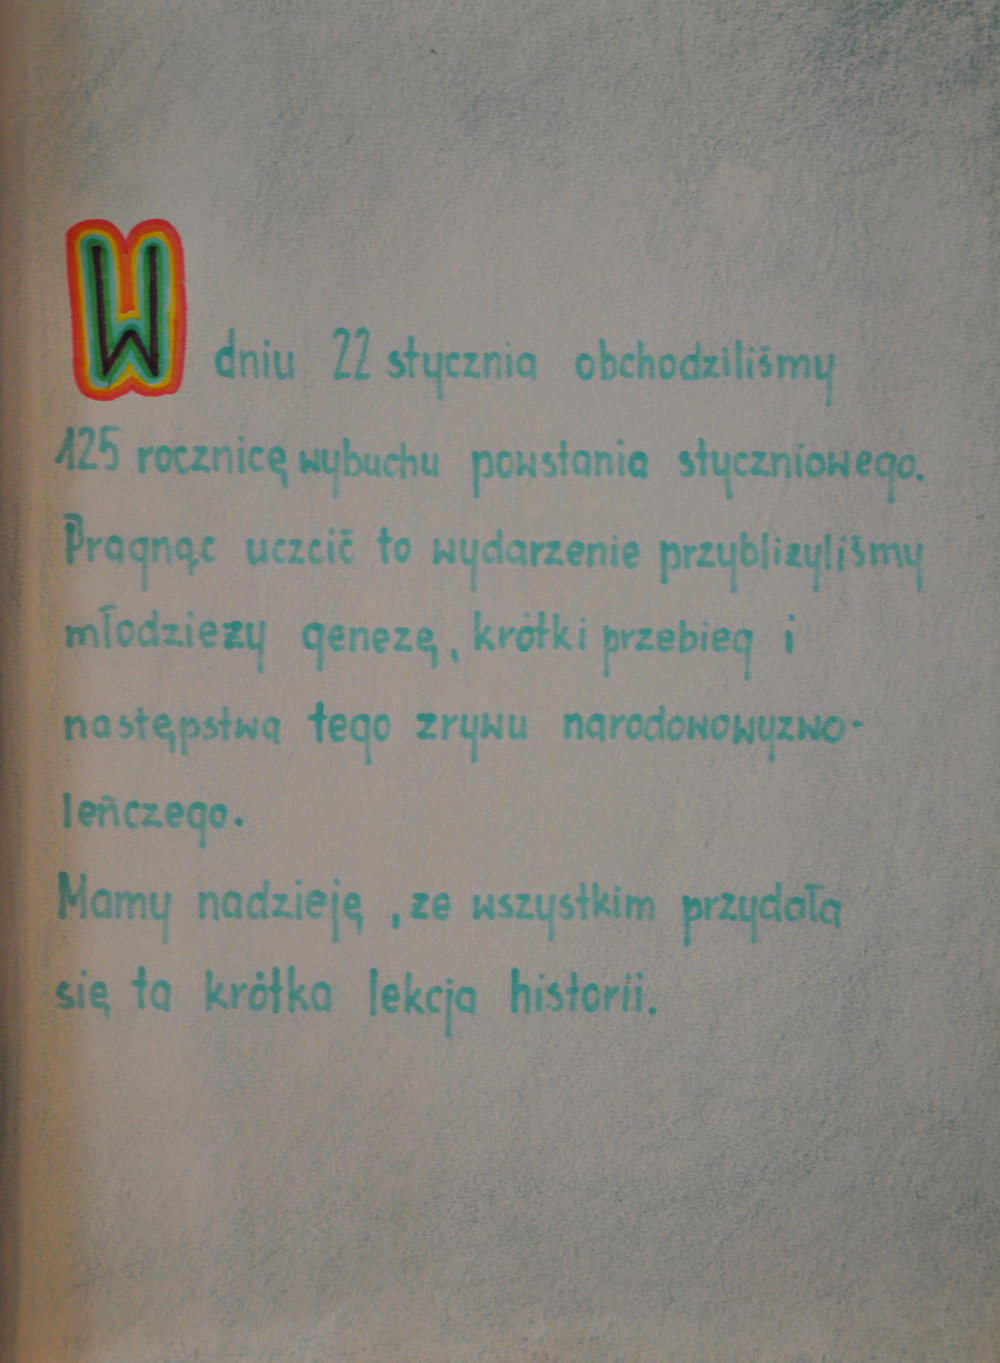 W dniu 22 stycznia obchodziliśmy
125 rocznicę wybuchu powstania styczniowego.
Pragnąc uczcić to wydarzenie przybliżyliśmy
młodzieży genezę, krótki przebieg i
następstwa tego zrywu narodowowyzwo-
leńczego.
Mamy nadzieję, że wszystkim przydała
się ta krótka lekcja historii.